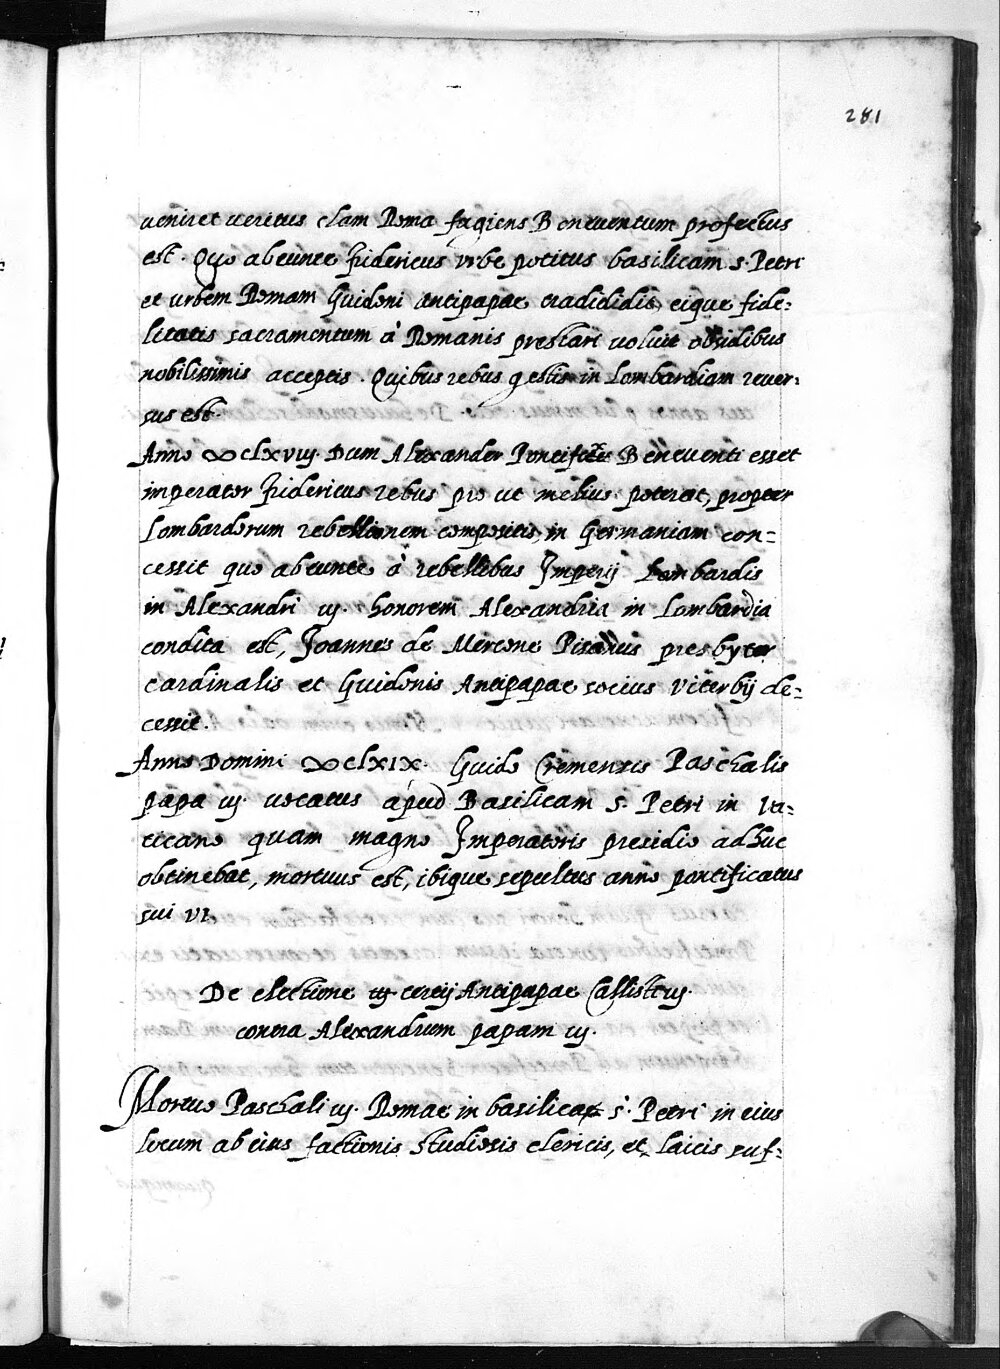 281
veniret veritus clam Roma fugiens Beneventum profectus
est. Quo abeunte Fridericus urbe potitus basilicam s. Petri
et urbem Romam Guidoni antipapae tradidit, eique fide=
litatis sacramentum à Romanis prestari voluit obsidibus
nobilissimis acceptis. Quibus rebus gestis in Lombardiam rever=
sus est.
Anno ∞clxviij. Dum Alexander Pontifex Beneventi esset
imperator Fridericus rebus pro ut melius poterat, propter
Lombardorum rebellionem compositis, in Germaniam con=
cessit quo abeunte à rebellibus Imperij Lombardis
in Alexandri iij. honorem Alexandria in Lombardia
condita est, Joannes de Mercone Pisanus presbyter
cardinalis et Guidonis Antipapae socius Viterbij de=
cessit.
Anno Domini ∞clxix. Guido Cremensis Paschalis
papa iij. vocatus apud Basilicam s. Petri in Va=
ticano quam magno Imperatoris presidio adhuc
obtinebat, mortuus est, ibique sepultus anno pontificatus
sui VI.
De electione tertij Antipapae Callisti iij.
contra Alexandrum papam iij.
Mortuo Paschali iij. Romae in basilica s. Petri in eius
locum ab eius factionis studiosis clericis, et laicis suf=